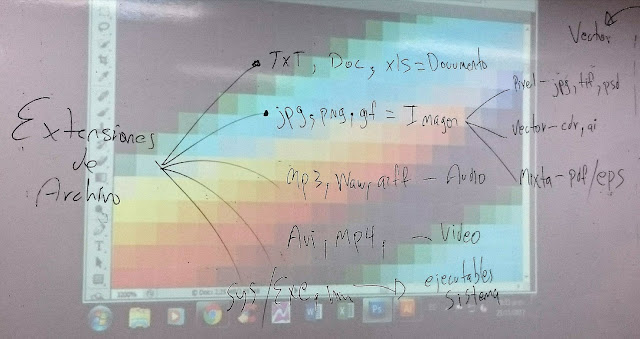 Vector
Extensiones
de
Archivo
TxT, Doc, xls = Documento
jpg, png, gf = Imagen
Pixel - jpg, tif, psd
Vector - cdr, ai
Mixta - pdf/eps
Mp3, Waw, aiff - Audio
Avi, Mp4, - Video
sys/Exe,
ejecutables
sistema